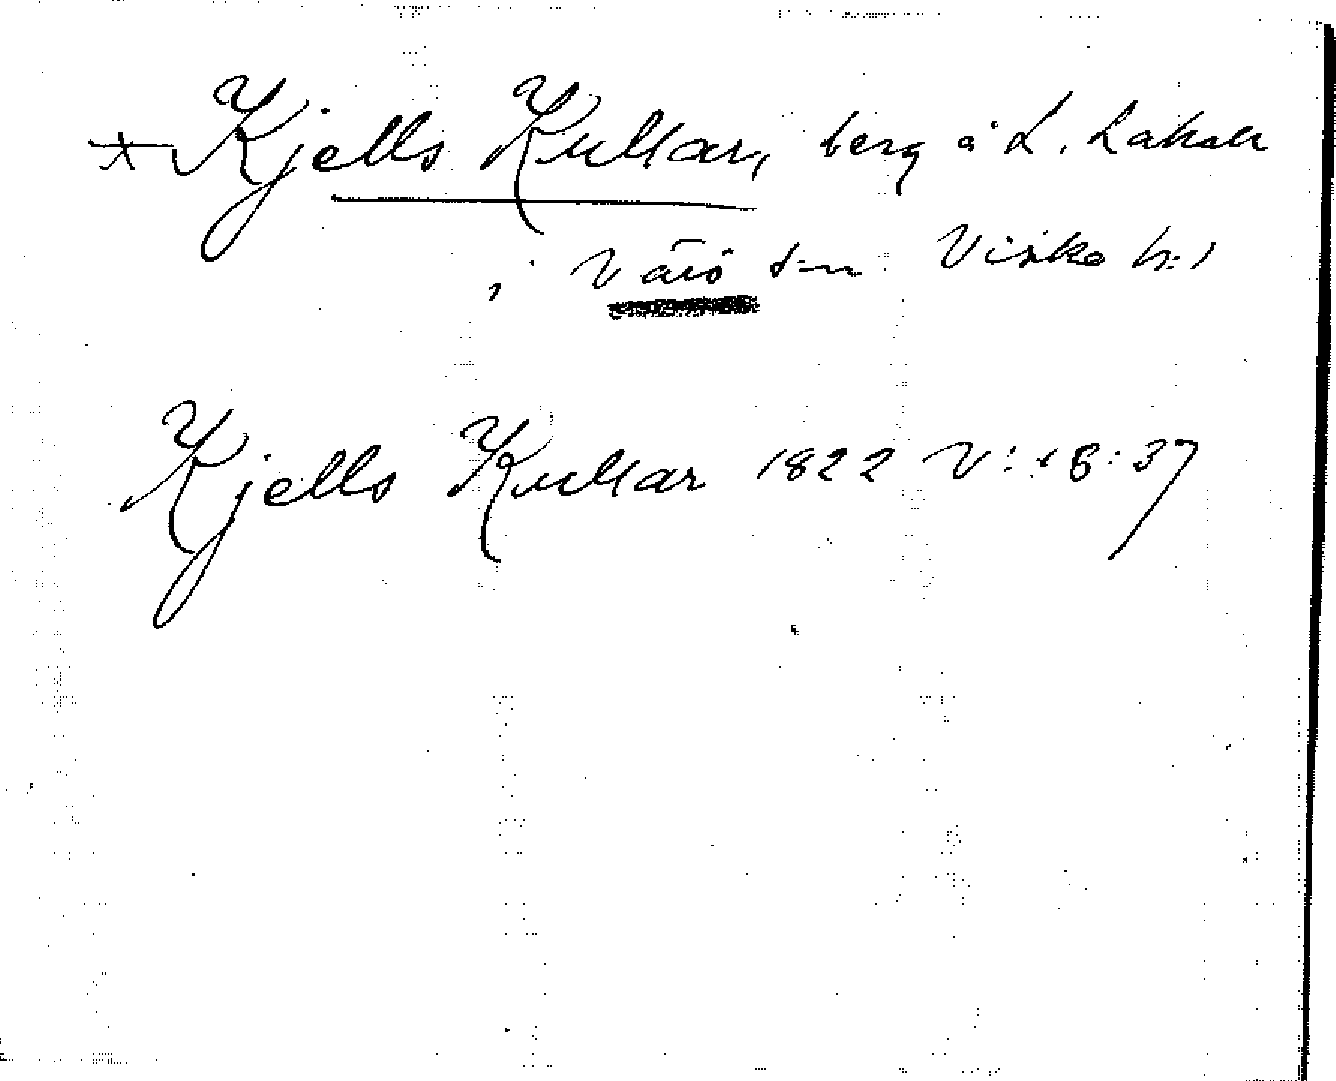 * Kjells Kullar, berg å L. Lahall
i Värö s-n Viske h:d
Kjells Kullar 1822 V:18:37